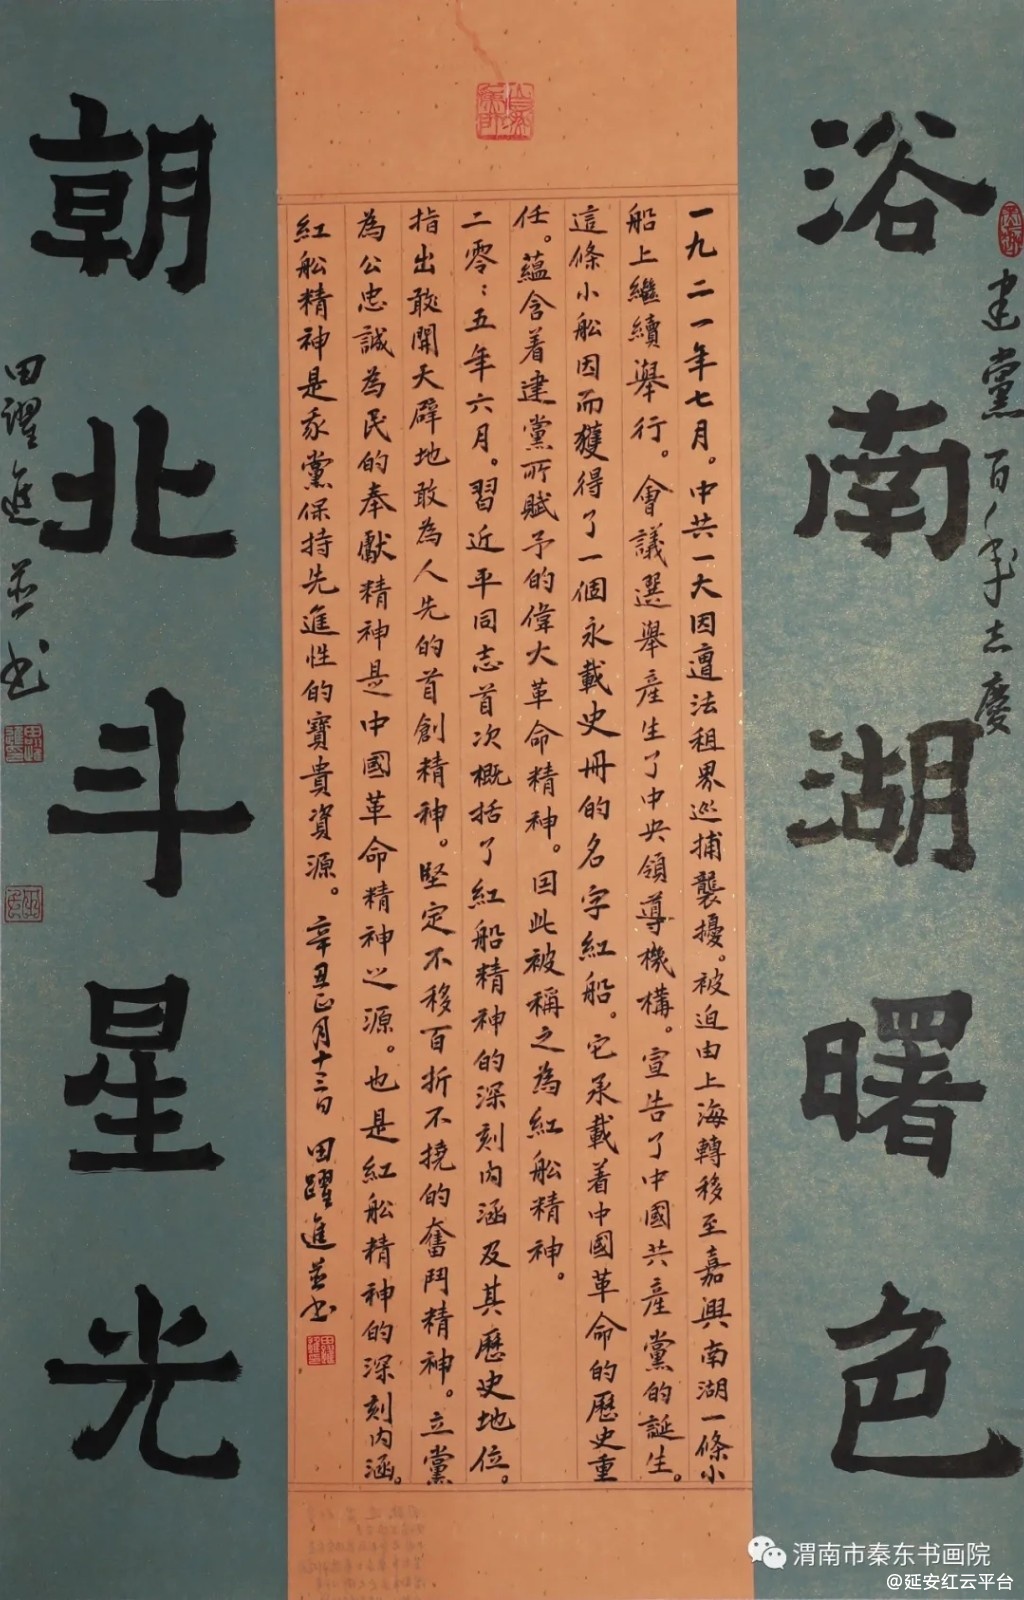 建黨百年志慶
浴南湖曙色
一九二一年七月。中共一大因遭法租界巡捕襲擾。被迫由上海轉移至嘉興南湖一條小
船上繼續舉行。會議選舉產生了中央領導機構。宣告了中國共產黨的誕生。
這條小船因而獲得了一個永載史冊的名字紅船。它承載着中國革命的歷史重
任。蘊含着建黨所賦予的偉大革命精神。因此被稱之為紅船精神。
二零:五年六月。習近平同志首次概括了紅船精神的深刻內涵及其歷史地位。
指出敢開天辟地敢為人先的首創精神。堅定不移百折不撓的奮鬥精神。立黨
為公忠誠為民的奉獻精神是中國革命精神之源。也是紅船精神的深刻內涵。
紅船精神是我黨保持先進性的寶貴資源。辛丑正月十三日 田躍進并书
朝北斗星光
田躍進并书
渭南市秦东书画院
@延安红云平台